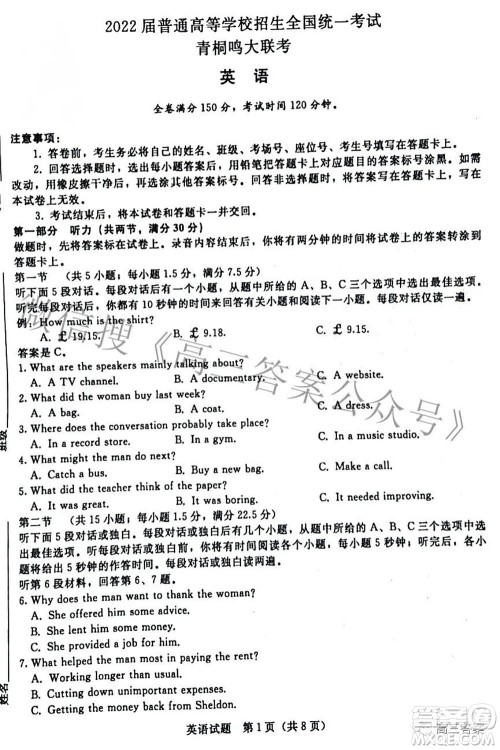 2022 届普通高等学校招生全国统一考试
青桐鸣大联考
英 语
全卷满分 150 分，考试时间 120 分钟。
注意事项：
1. 答卷前，考生务必将自己的姓名、班级、考场号、座位号、考生号填写在答题卡上。
2. 回答选择题时，选出每小题答案后，用铅笔把答题卡对应题目的答案标号涂黑。如需改
动，用橡皮擦干净后，再选涂其他答案标号。回答非选择题时，将答案写在答题卡上。写在
本试卷上无效。
3. 考试结束后，将本试卷和答题卡一并交回。
第一部分 听力（共两节，满分 30 分）
做题时，先将答案标在试卷上。录音内容结束后，你将有两分钟的时间将试卷上的答案转涂
到答题卡上。
第一节 （共 5 小题；每小题 1.5 分，满分 7.5 分）
听下面 5 段对话。每段对话后有一个小题，从题中所给的 A、B、C 三个选项中选出最佳选项。
听完每段对话后，你都有 10 秒钟的时间来回答有关小题和阅读下一小题。每段对话仅读一遍。
例：How much is the shirt?
A. ￡ 19.15. B. ￡ 9.18. C. ￡ 9.15.
答案是 C。
1. What are the speakers mainly talking about?
A. A TV channel. B. A documentary. C. A website.
2. What did the woman buy last week?
A. A bag. B. A dress. C. A shirt.
3. Where does the conversation probably take place?
A. In a record store. B. In a gym. C. In a music studio.
4. What might the man do next?
A. Come back later. B. Buy a bag. C. Make a call.
5. What did the teacher think of the paper?
A. It was great. B. It was poor. C. It needed improving.
第二节 （共 15 小题；每小题 1.5 分，满分 22.5 分）
听下面 5 段对话或独白。每段对话或独白后有几个小题，从题中所给的 A、B、C 三个选项中选
出最佳选项。听每段对话或独白前，你将有时间阅读各个小题，每小题 5 秒钟；听完后，各小
题将给出 5 秒钟的作答时间。每段对话或独白读两遍。
听第 6 段材料，回答第 6、7 题。
6. Why does the man want to thank the woman?
A. She offered him some advice.
B. She lent him some money.
C. She provided a job for him.
7. What helped the man most in paying the rent?
A. Working longer hours.
B. Cutting down unimportant expenses.
C. Getting some money back from his brother.
英语试题 第 1 页（共 8 页）
班级
姓名
微信搜《高三答案公众号》
高三答案